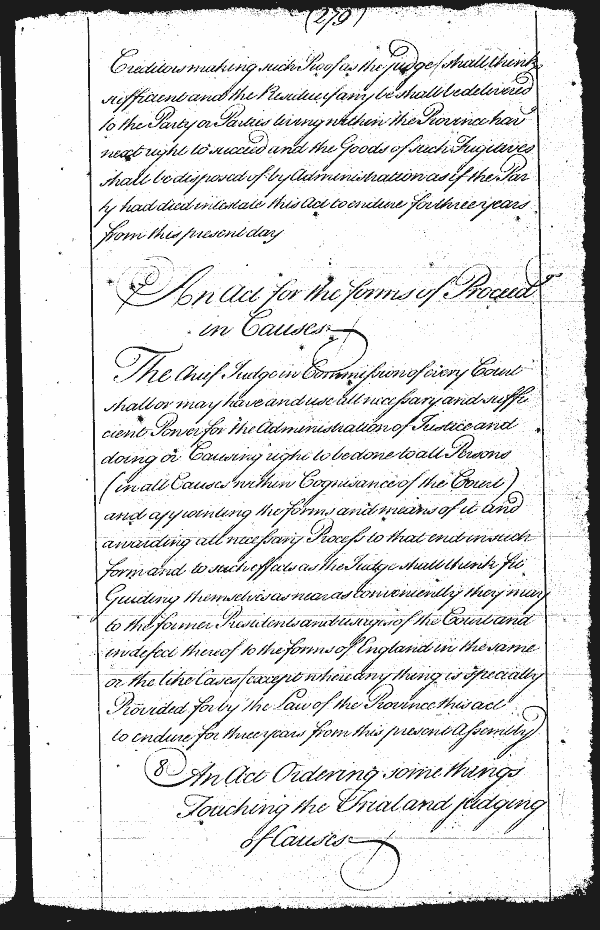 (279)
Creditors making such Proof as the Judge shall think
sufficient and the Residue if any be shall be delivered
to the Party or Parties living within the Province hav
next right to succeed and the Goods of such Fugitives
shall be disposed of by Administration as if the Par
ty had died intestate this Act to endure for three years
from this present day
7 An Act for the forms of Proceed
in Causes
The Chief Judge in Commission of every Court
shall or may have and use all necessary and suffi
cient Power for the Administration of Justice and
doing or Causing right to be done to all Persons
(in all Causes within Cognisance of the Court)
and appointing the forms and means of it and
awarding all necessary Process to that end in such
form and to such effects as the Judge shall think fit
Guiding themselves as near as conveniently they may
to the former Presidents and usages of the Court and
in defect thereof to the forms of England in the same
or the like Cases except where any thing is specially
Provided for by the Law of the Province this act
to endure for three years from this present Assembly
8 An Act Ordering some things
Touching the Trial and judging
of Causes